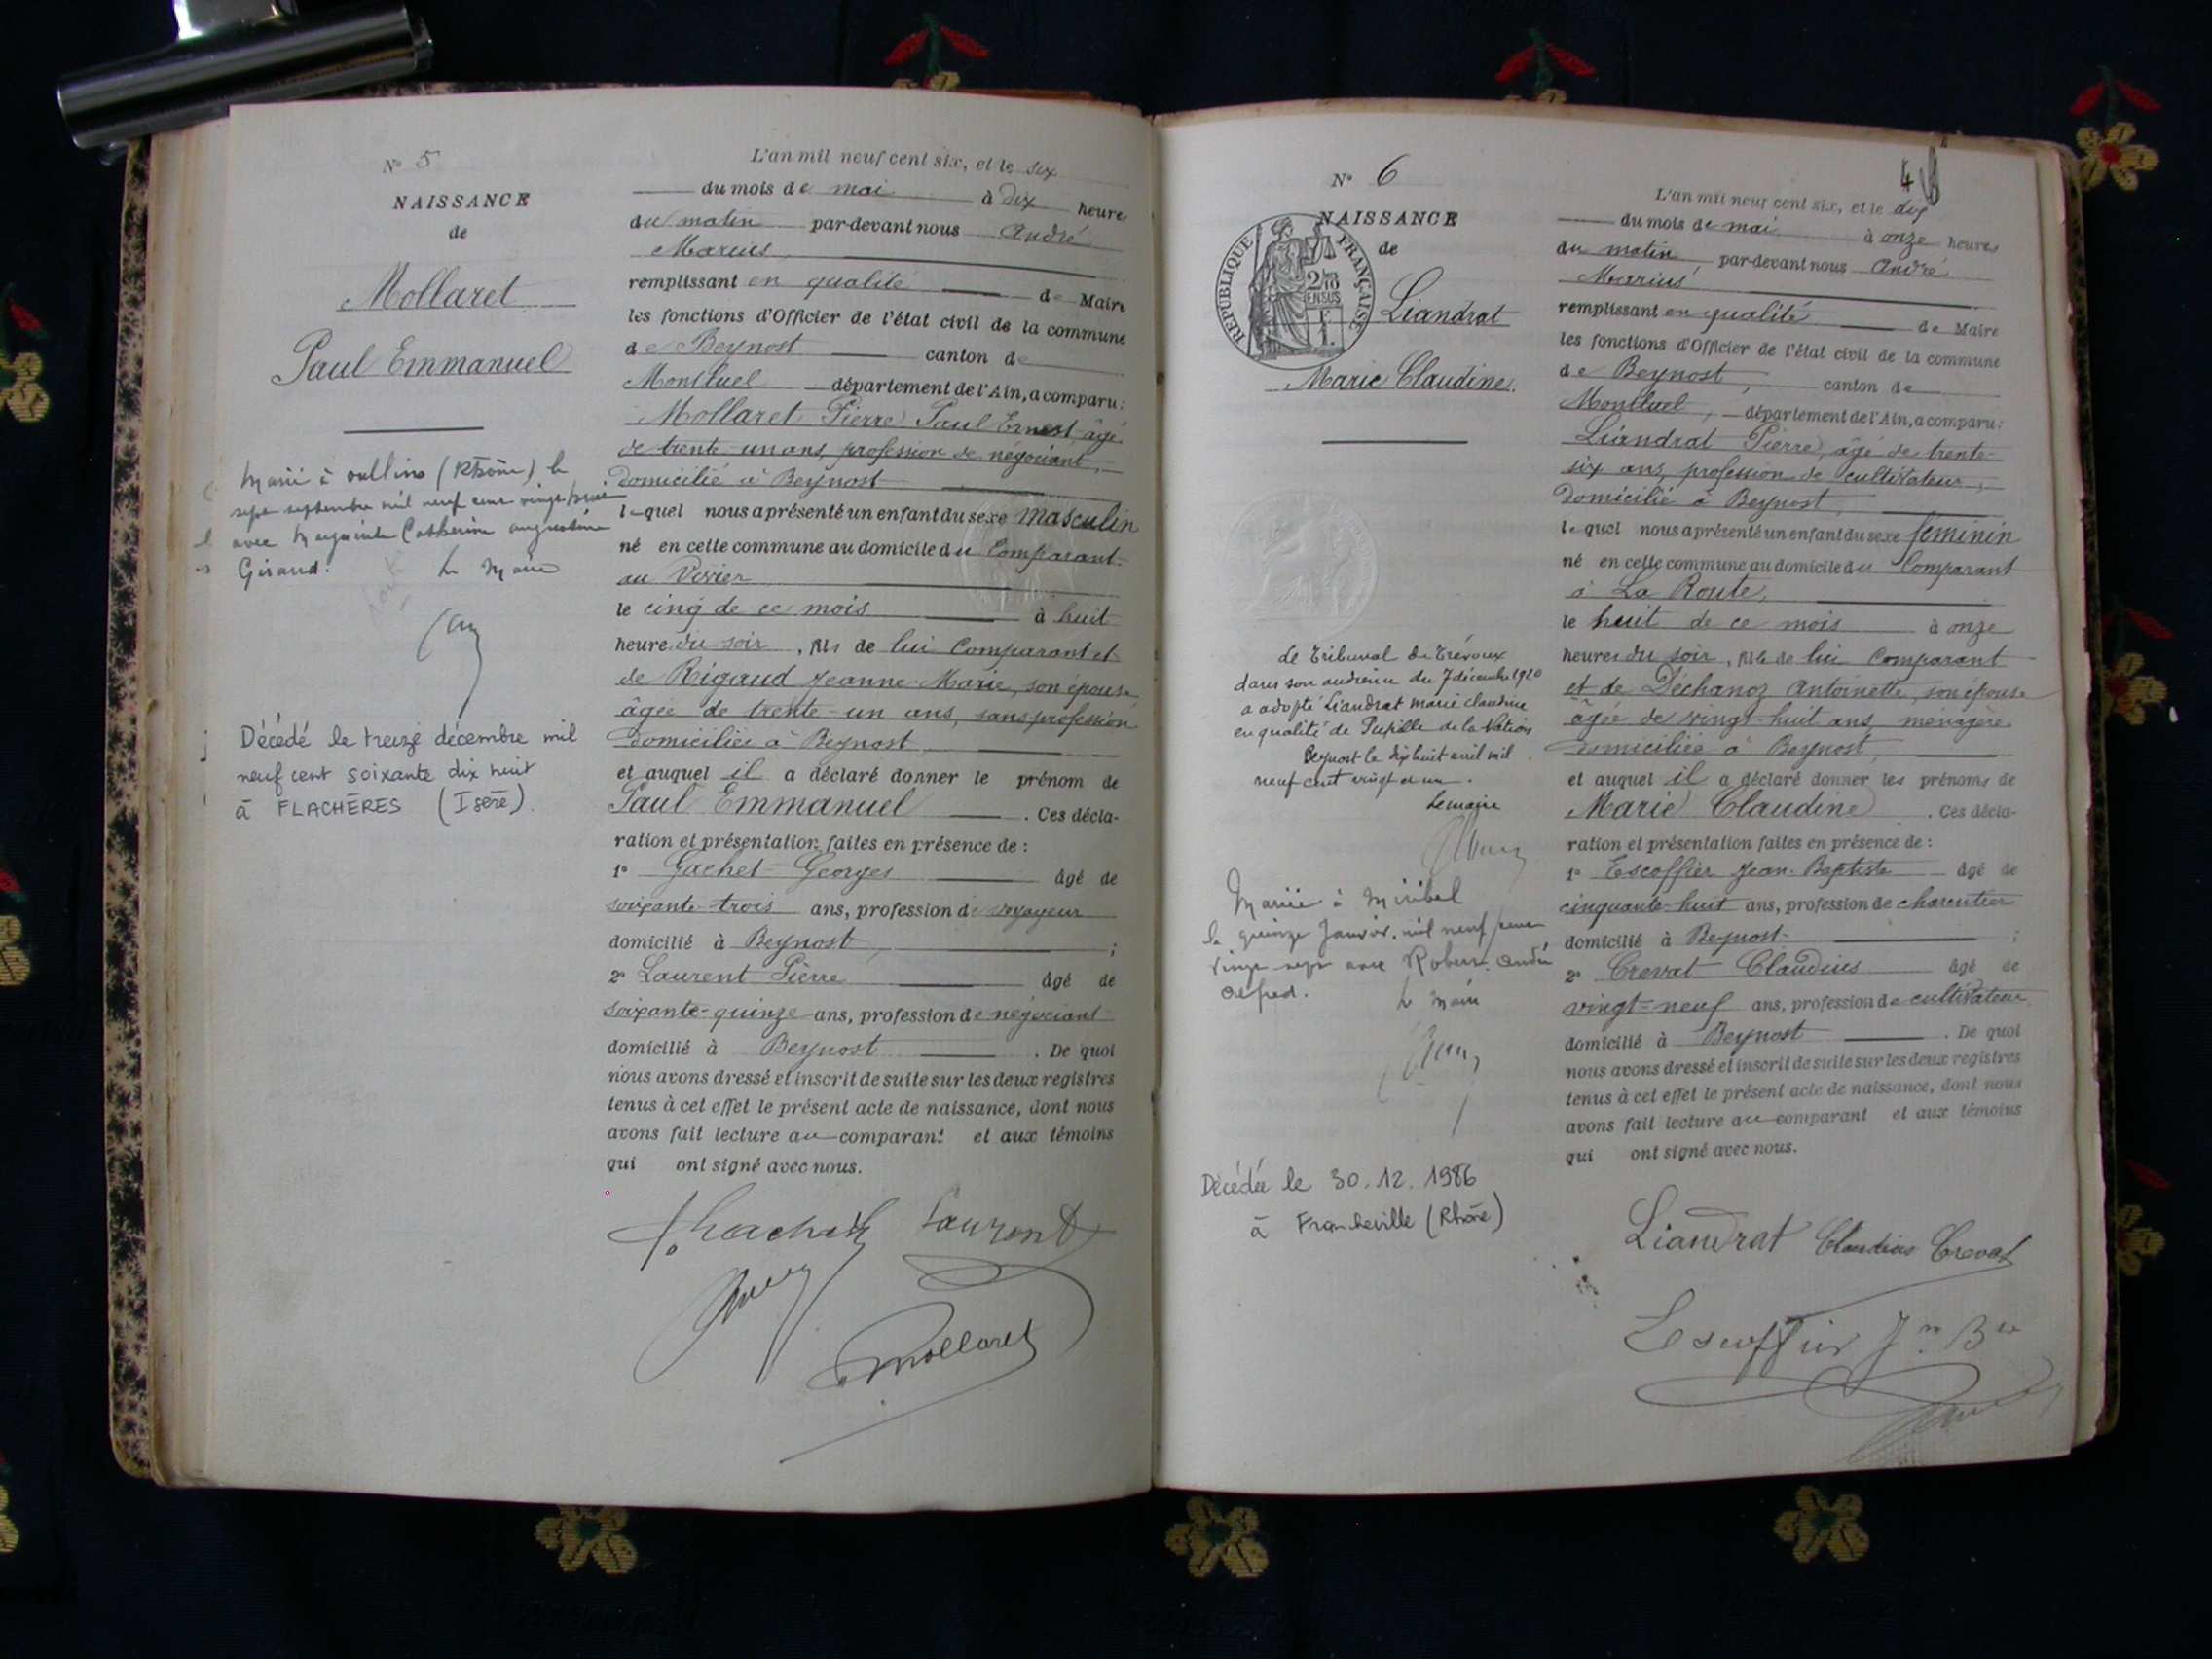 N° 5
NAISSANCE
de
Mollaret
Paul Emmanuel
Marié à Oullins (Rhône) le
sept septembre mil neuf cent vingt
avec Marguerite Catherine Augustine
Giraud. Le Maire
Décédé le treize décembre mil
neuf cent soixante dix huit
à FLACHÈRES (Isère).
L'an mil neuf cent six, et le six
du mois de mai à dix heures
du matin par-devant nous André
Marius
remplissant en qualité de Maire
les fonctions d'Officier de l'état civil de la commune
de Beynost canton de
Montluel département de l'Ain, a comparu:
Mollaret Pierre Paul Ernest, âgé
de trente-un ans, profession de négociant,
domicilié à Beynost
lequel nous a présenté un enfant du sexe masculin
né en cette commune au domicile du Comparant
au Vivier
le cinq de ce mois à huit
heure du soir, fils de lui Comparant et
de Rigaud Jeanne-Marie, son épouse
âgée de trente-un ans, sans profession
domiciliée à Beynost,
et auquel il a déclaré donner le prénom de
Paul Emmanuel. Ces décla-
ration et présentation faites en présence de :
1° Gachet Georges âgé de
soixante-trois ans, profession de voyageur
domicilié à Beynost, ;
2° Laurent Pierre âgé de
soixante-quinze ans, profession de négociant
domicilié à Beynost. De quoi
nous avons dressé et inscrit de suite sur les deux registres
tenus à cet effet le présent acte de naissance, dont nous
avons fait lecture au comparant et aux témoins
qui ont signé avec nous.
Laurent
Mollaret
N° 6
4
NAISSANCE
de
REPUBLIQUE FRANÇAISE
2/10
EN SUS
Liandrat
Marie Claudine.
Le Tribunal de Trévoux
dans son audience du 7 décembre 1920
a adopté Liandrat Marie Claudine
en qualité de Pupille de la Nation
Beynost le dix huit avril mil
neuf cent vingt et un.
Le maire
Mariée à Miribel
le quinze Janvier mil neuf cent
vingt sept avec Robert André
Alfred. Le Maire
Décédée le 30.12.1986
à Francheville (Rhône)
L'an mil neuf cent six, et le dix
du mois de mai à onze heures
du matin par-devant nous André
Marius
remplissant en qualité de Maire
les fonctions d'Officier de l'état civil de la commune
de Beynost, canton de
Montluel, département de l'Ain, a comparu:
Liandrat Pierre, âgé de trente-
six ans, profession de cultivateur,
domicilié à Beynost,
lequel nous a présenté un enfant du sexe féminin
né en cette commune au domicile du Comparant
à La Route,
le huit de ce mois à onze
heures du soir, fille de lui Comparant
et de Déchanoz Antoinette, son épouse
âgée de vingt-huit ans, ménagère
domiciliée à Beynost,
et auquel il a déclaré donner les prénoms de
Marie Claudine. Ces décla-
ration et présentation faites en présence de :
1° Escoffier Jean-Baptiste âgé de
cinquante-huit ans, profession de charcutier
domicilié à Beynost ;
2° Crevat Claudius âgé de
vingt-neuf ans, profession de cultivateur
domicilié à Beynost. De quoi
nous avons dressé et inscrit de suite sur les deux registres
tenus à cet effet le présent acte de naissance, dont nous
avons fait lecture au comparant et aux témoins
qui ont signé avec nous.
Liandrat Claudius Crevat
Escoffier Jn Bte